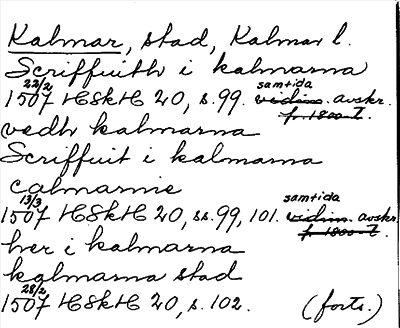 Kalmar, stad, Kalmar l.
Scriffuith i kalmarna
22/2 samtida
1507 HSkH 20, s. 99. vidim. avskr.
f. 1800-t.
vedh kalmarna
Scriffuit i kalmarna
calmarnie
13/3 samtida
1507 HSkH 20, ss. 99, 101. vidim. avskr.
f. 1800-t.
her i kalmarna
kalmarna stad
28/2
1507 HSkH 20, s. 102. (forts.)